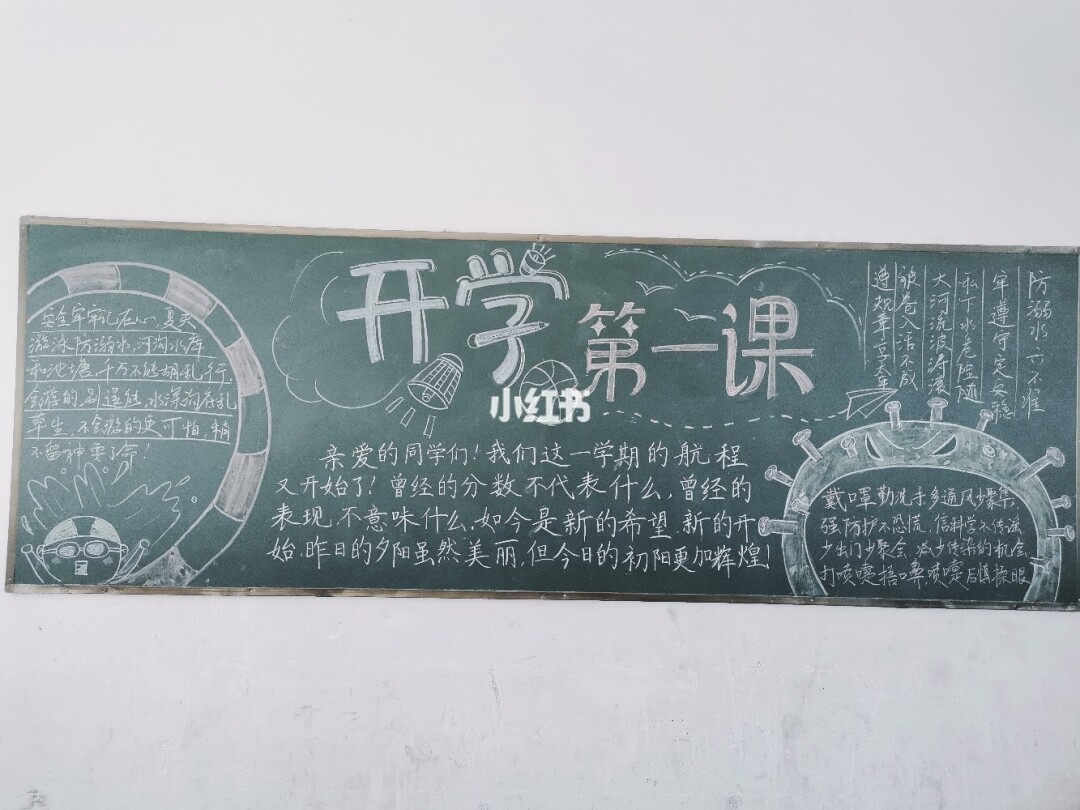 开学第一课
小红书
安全牢牢记在心,夏天
游泳防溺水,河沟水库
和池塘,千万不能胡乱行.
会游的,别逞能,水深沟有乱
草生,不会游的更可怕,稍
不留神要了命!
亲爱的同学们!我们这一学期的航程
又开始了!曾经的分数不代表什么,曾经的
表现,不意味什么,如今是新的希望.新的开
始.昨日的夕阳虽然美丽,但今日的初阳更加辉煌!
防溺水六不准
牢遵守定安稳
私下水危险随
大河流波涛滚
被卷入活不成
遵规章享太平
戴口罩勤洗手多通风少聚集,
强防护不恐慌,信科学不传谣
少出门少聚会,减少传染的机会
打喷嚏捂口鼻,喷嚏后慎揉眼